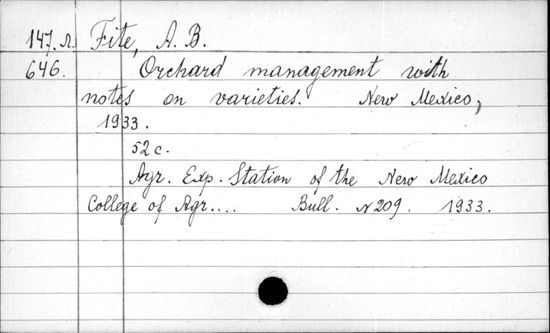 147.A. Fite, A. B.
646. Orchard management with
notes on varieties. New Mexico,
1933.
52 c.
Agr. Exp. Station of the New Mexico
College of Agr.... Bull. N 209. 1933.